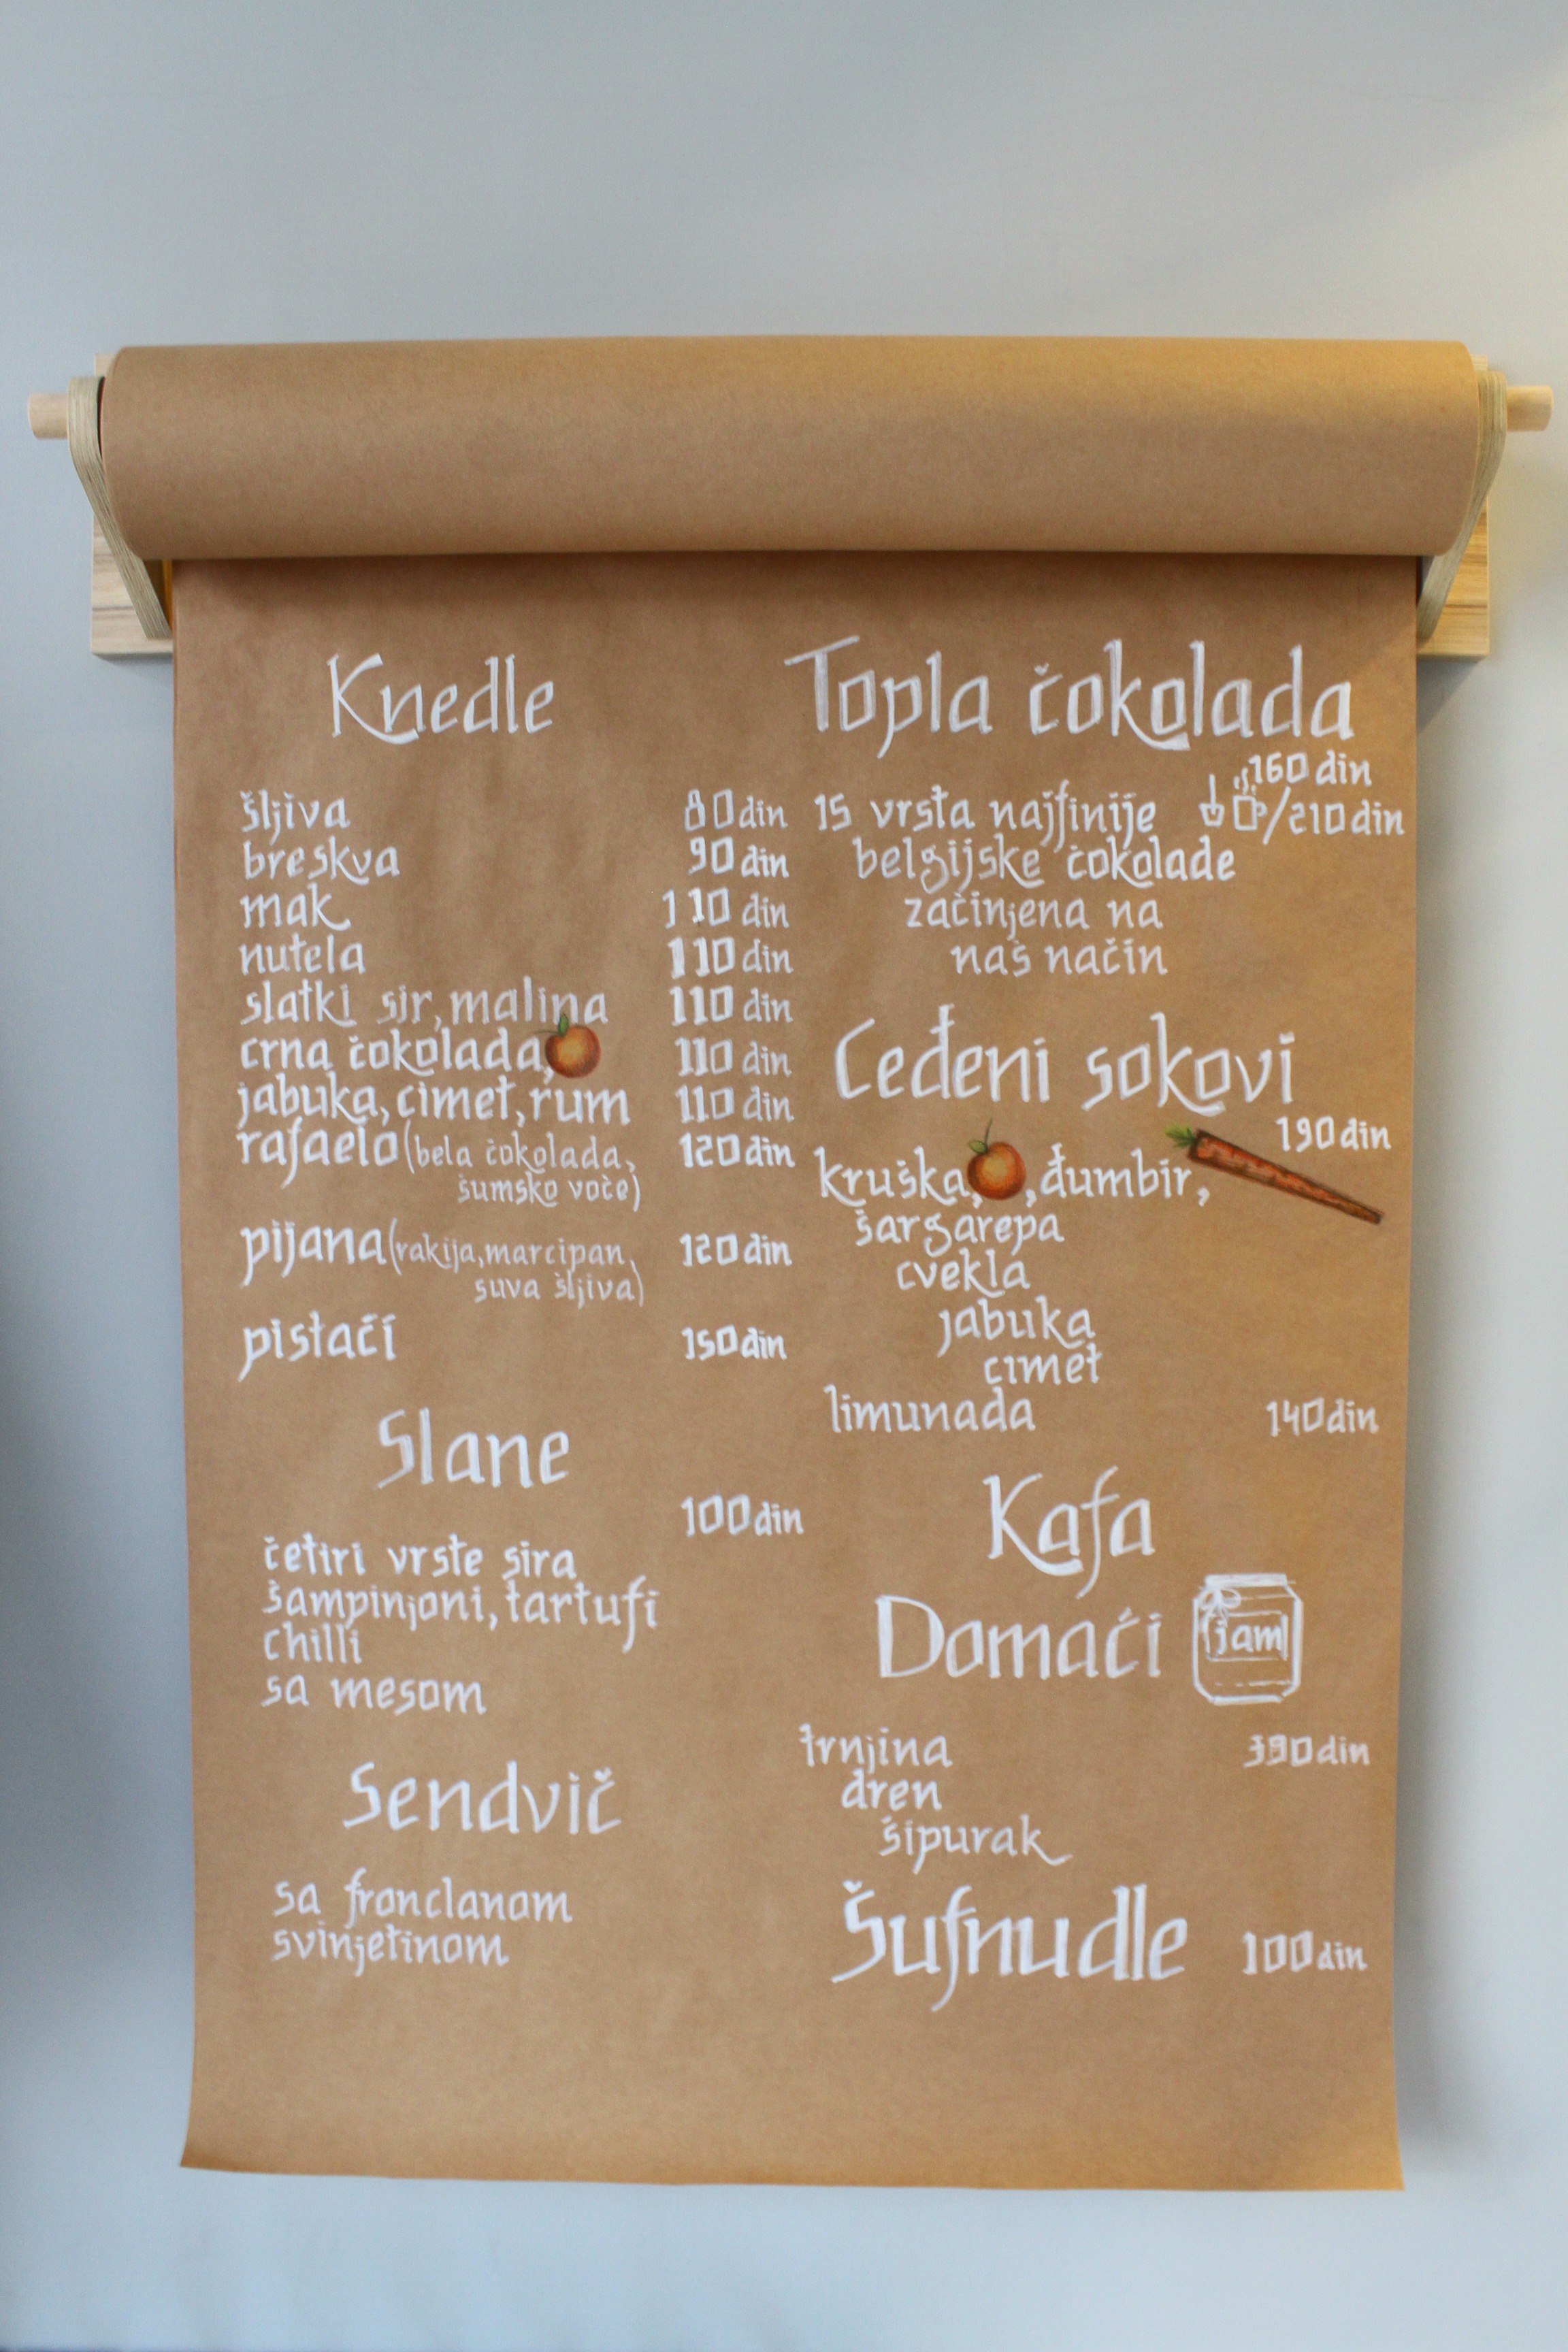 Knedle
šljiva 80din
breskva 90din
mak 110 din
nutela 110din
slatki sir, malina 110 din
crna čokolada, 110 din
jabuka, cimet, rum 110 din
rafaelo (bela čokolada, 120din
šumsko voće)
pijana (rakija, marcipan, 120din
suva šljiva)
pistaći 150din
Slane
100din
četiri vrste sira
šampinjoni, tartufi
chilli
sa mesom
Sendvič
sa fronclanom
svinjetinom
Topla čokolada
160 din
15 vrsta najfinije /210din
belgijske čokolade
začinjena na
naš način
Ceđeni sokovi
190din
kruška, , đumbir,
šargarepa
cvekla
jabuka
cimet
limunada 140din
Kafa
Domaći jam
trnjina 390din
dren
šipurak
Šufnudle 100din